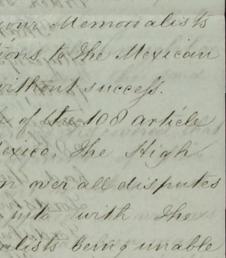 your Memorialists
tions to the Mexican
without success.
of the 108 article
Mexico, the High
n over all disputes
into with the
alists being unable